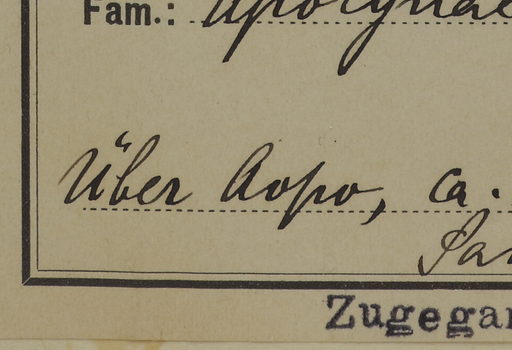 Fam.: Apocynac
Über Aopo, ca.
Zugegan